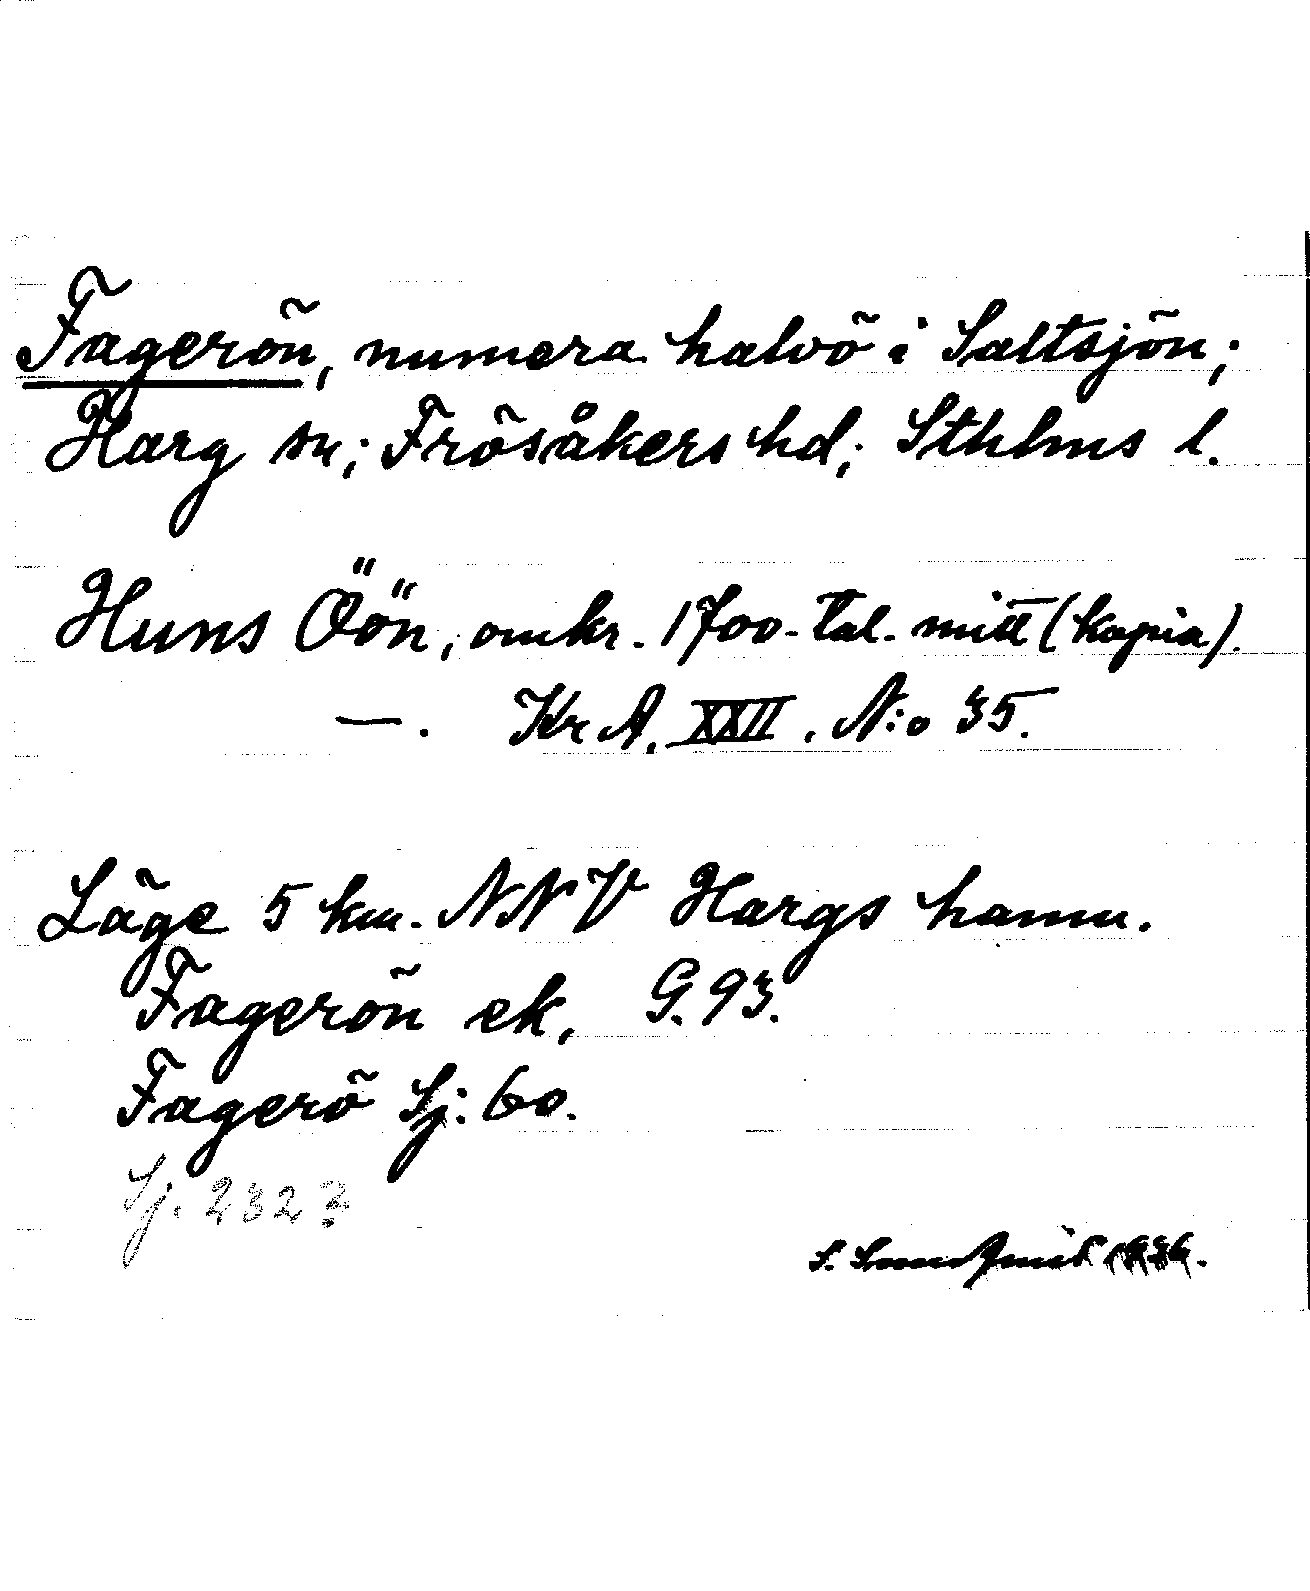 Fagerön, numera halvö i Saltsjön;
Harg sn; Frösåkers hd; Sthlms l.
Huns Öön, omkr. 1700-tal. mitt (kopia).
—. Kr A. XXII. N:o 35.
Läge 5 km. NNV Hargs hamn.
Fagerön ek. G. 93.
Fagerö Sj: 60.
Sj. 2323